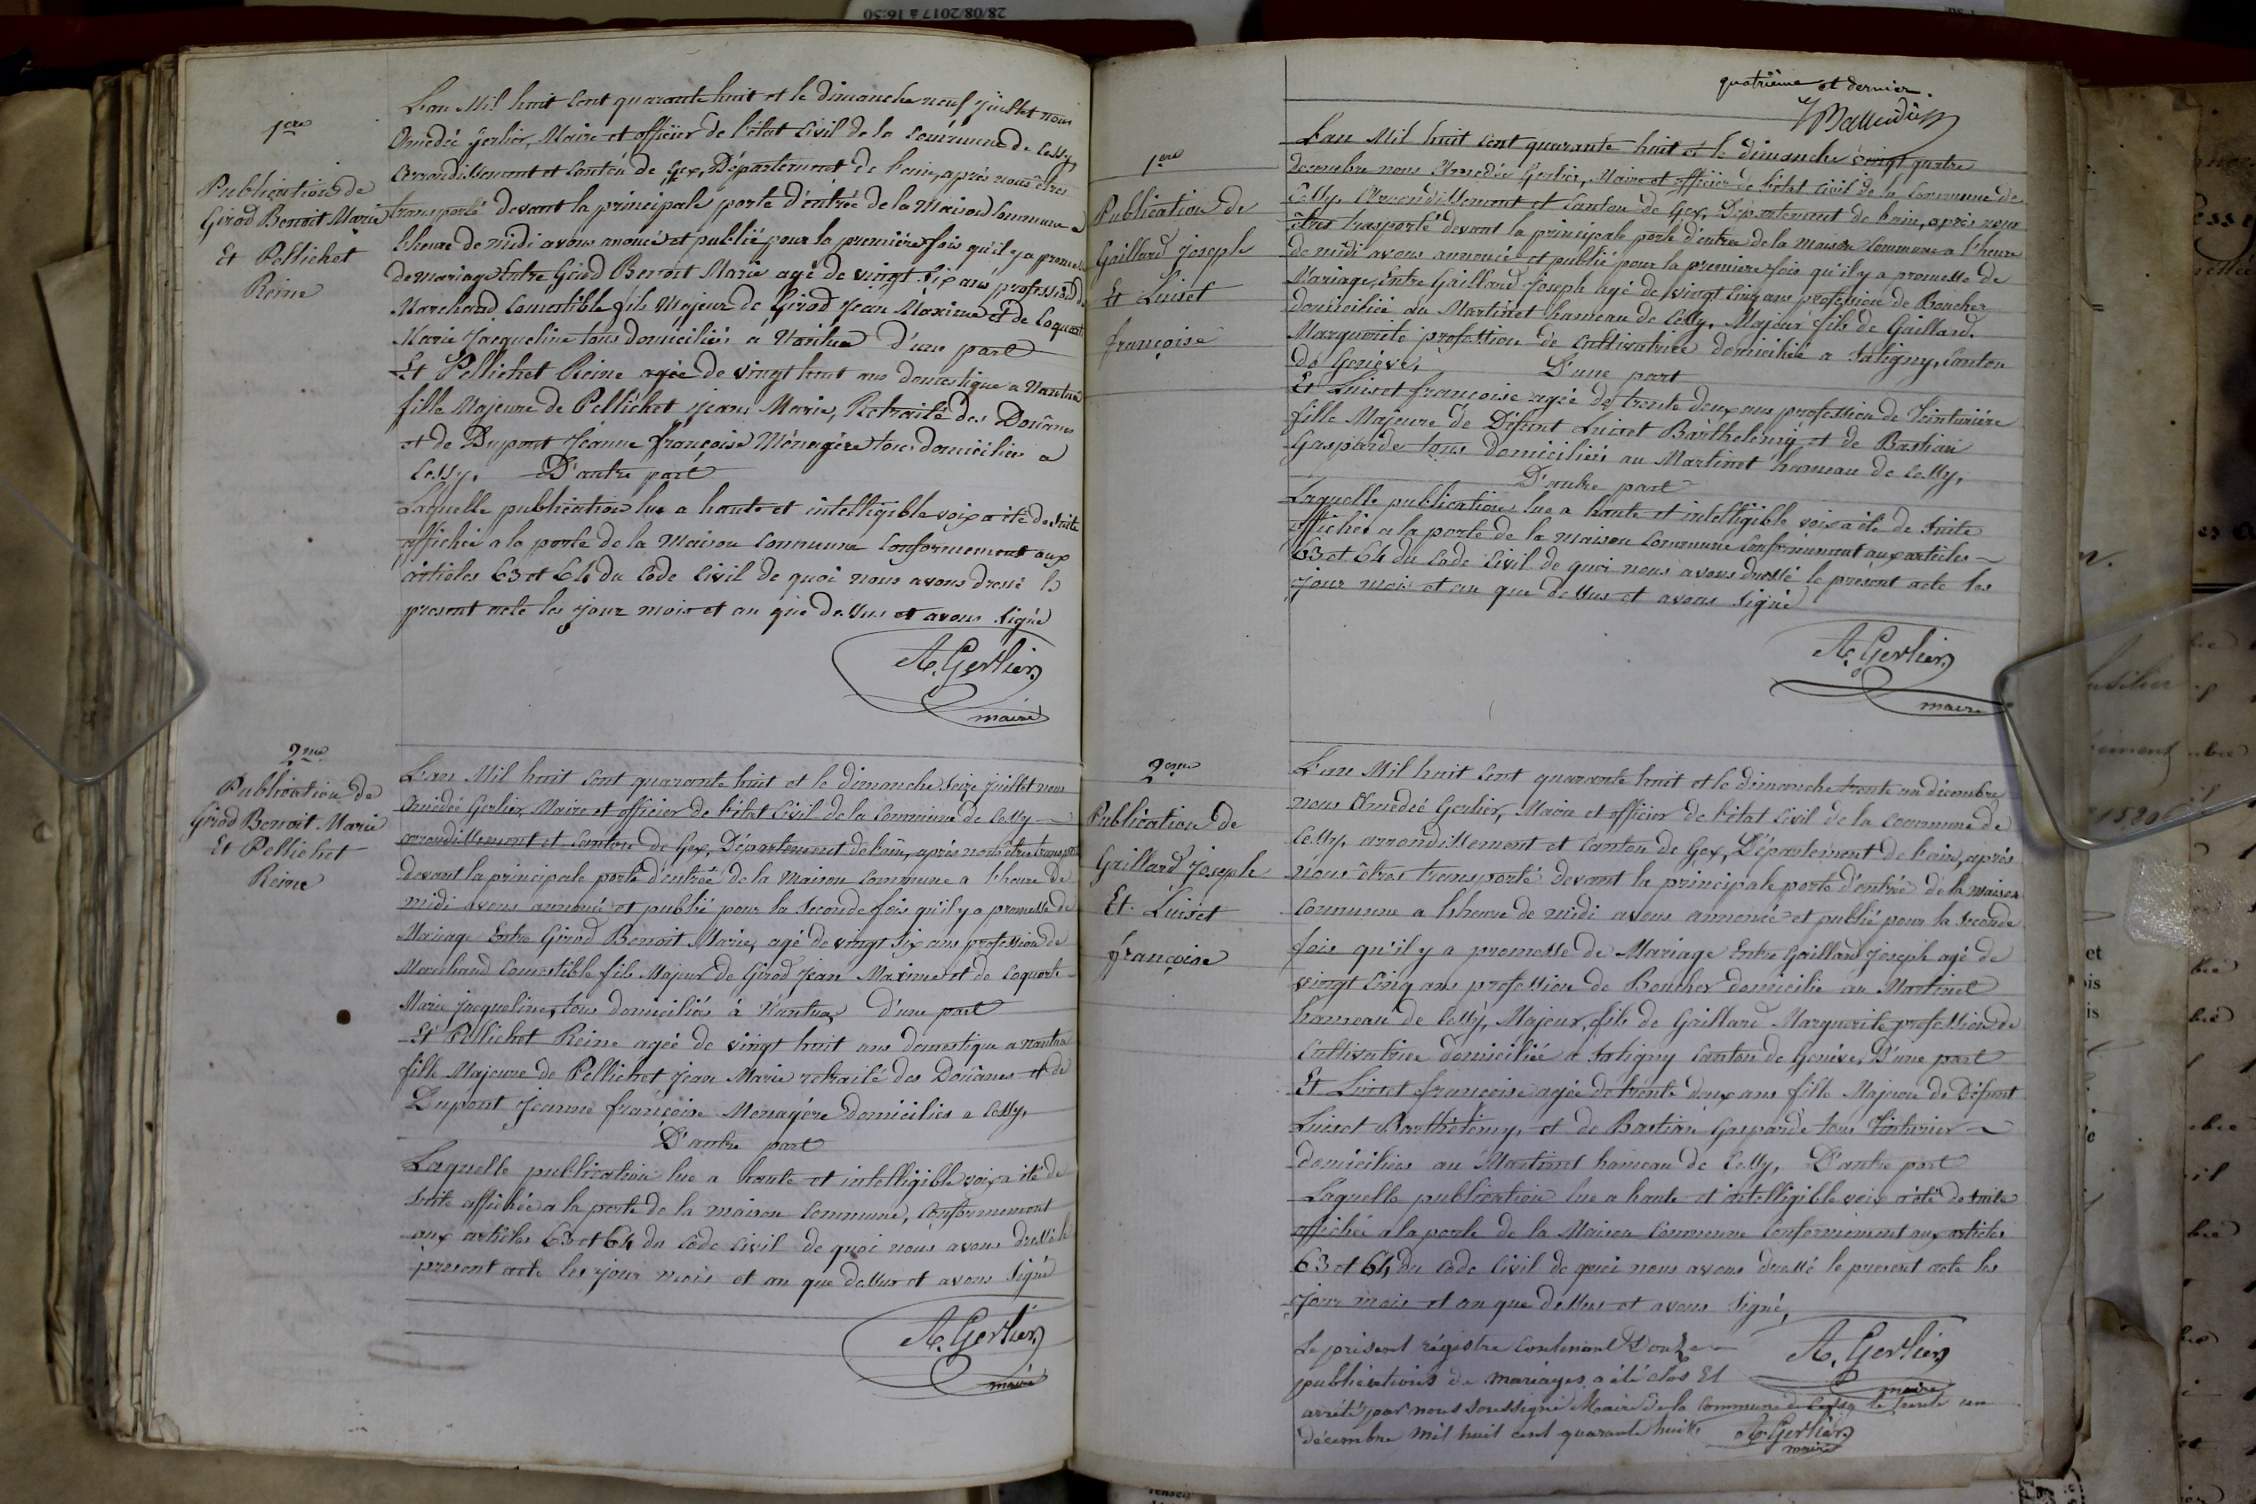 28/08/2017 à 16:50
1ere
Publication de
Girod Benoit Marie
Et Pellichet
Reine
L'an Mil huit cent quarante huit et le dimanche neuf Juillet nous
Amédée Gerlier, Maire et officier de l'état Civil de la Commune de Cessy
Arrondissement et Canton de Gex, Département de l'ain, après nous êtres
transporté devant la principale porte d'entrée de la Maison Commune a
l'heure de midi avons anoncé et publié pour la première fois qu'il y a promesse
de mariage Entre Girod Benoit Marie agé de vingt six ans profession de
Marchand Comestible fils Majeur de Girod Jean Maxime et de Coquart
Marie Jacqueline tous domiciliés a Nantua d'une part
Et Pellichet Reine agée de vingt huit ans domestique a Nantua
fille Majeure de Pellichet Jean Marie, Retraité des Douânes
et de Dupont Jeanne françoise Ménagère tous domiciliés a
Cessy. D'autre part
Laquelle publication lue a haute et intelligible voix a été de suite
affichée a la porte de la Maison Commune Conformement aux
articles 63 et 64 du Code Civil de quoi nous avons dressé le
present acte les jour mois et an que dessus et avons signé
A. Gerlier
maire
2me
Publication de
Girod Benoit Marie
Et Pellichet
Reine
L'an Mil huit cent quarante huit et le dimanche seize juillet nous
Amédée Gerlier, Maire et officier de l'état Civil de la Commune de Cessy
arrondissement et Canton de Gex, Département de l'ain, après nous être transporté
devant la principale porte d'entrée de la Maison Commune a l'heure de
midi avons annoncé et publié pour la seconde fois qu'il y a promesse de
Mariage Entre Girod Benoit Marie, agé de vingt six ans profession de
Marchand Comestible fils Majeur de Girod Jean Maxime et de Coquart
Marie jacqueline, tous domiciliés à Nantua d'une part
Et Pellichet Reine agée de vingt huit ans domestique a nantua
fille Majeure de Pellichet Jean Marie retraité des Douânes et de
Dupont Jeanne françoise Menagère domicilies a Cessy.
D'autre part
Laquelle publication lue a haute et intelligible voix a été de
suite affichée a la porte de la maison Commune, Conformement
aux articles 63 et 64 du Code Civil de quoi nous avons dressé le
présent acte les jour mois et an que dessus et avons signé
A. Gerlier
maire
quatrième et dernier.
1ere
Publication de
Gaillard Joseph
Et Luiset
françoise
L'an Mil huit cent quarante huit et le dimanche vingt quatre
decembre nous Amedée Gerlier, Maire et officier de l'état Civil de la Commune de
Cessy, Arrondissement et Canton de Gex, Département de l'ain, après nous
êtres trasporté devant la principale porte d'entrée de la Maison Commune a l'heure
de midi avons annoncé et publié pour la premiere fois qu'il y a promesse de
Mariage, Entre Gaillard Joseph agé de vingt cinq ans profession de Boucher
domicilié au Martinet hameau de Cessy, Majeur fils de Gaillard
Marguerite profession de Cultivatrice domiciliée a Satigny, Canton
de Genève, D'une part
Et Luiset françoise agée de trente deux ans profession de Teinturière
fille Majeure de Défunt Luiset Barthelémy et de Bastian
Gasparde tous domiciliés au Martinet hameau de Cessy,
D'autre part
Laquelle publication lue a haute et intelligible voix a été de suite
affichée a la porte de la maison Commune Conformement aux articles
63 et 64 du Code Civil de quoi nous avons dressé le présent acte les
jour mois et an que dessus et avons signé
A. Gerlier
maire
2eme
Publication de
Gaillard Joseph
Et Luiset
françoise
L'an Mil huit cent quarante huit et le dimanche trente un décembre
nous Amedeé Gerlier, Maire et officier de l'état Civil de la Commune de
Cessy, arrondissement et Canton de Gex, Département de l'ain, après
nous êtres transporté devant la principale porte d'entrée de la maison
Commune a l'heure de midi avons annoncé et publié pour la seconde
fois qu'il y a promesse de Mariage Entre Gaillard Joseph agé de
vingt cinq ans profession de Boucher domicilié au Martinet
hameau de Cessy, Majeur, fils de Gaillard Marguerite profession de
Cultivatrice domiciliée a Satigny Canton de Genève, D'une part
Et Luiset françoise agée de trente deux ans fille Majeure de Défunt
Luiset Barthélémy, et de Bastian Gasparde tous Tinturier
domiciliés au Martinet hameau de Cessy, D'autre part
Laquelle publication lue a haute et intelligible voix a été de suite
affichée a la porte de la Maison Commune Conformement aux articles
63 et 64 du Code Civil de quoi nous avons dressé le present acte les
jour mois et an que dessus et avons signé,
A. Gerlier
maire
Le présent régistre contenant Douze
publications de mariages a été clos Et
arrêté par nous soussigné Maire de la commune de Cessy le trente un
décembre mil huit cent quarante huit.
A. Gerlier
maire